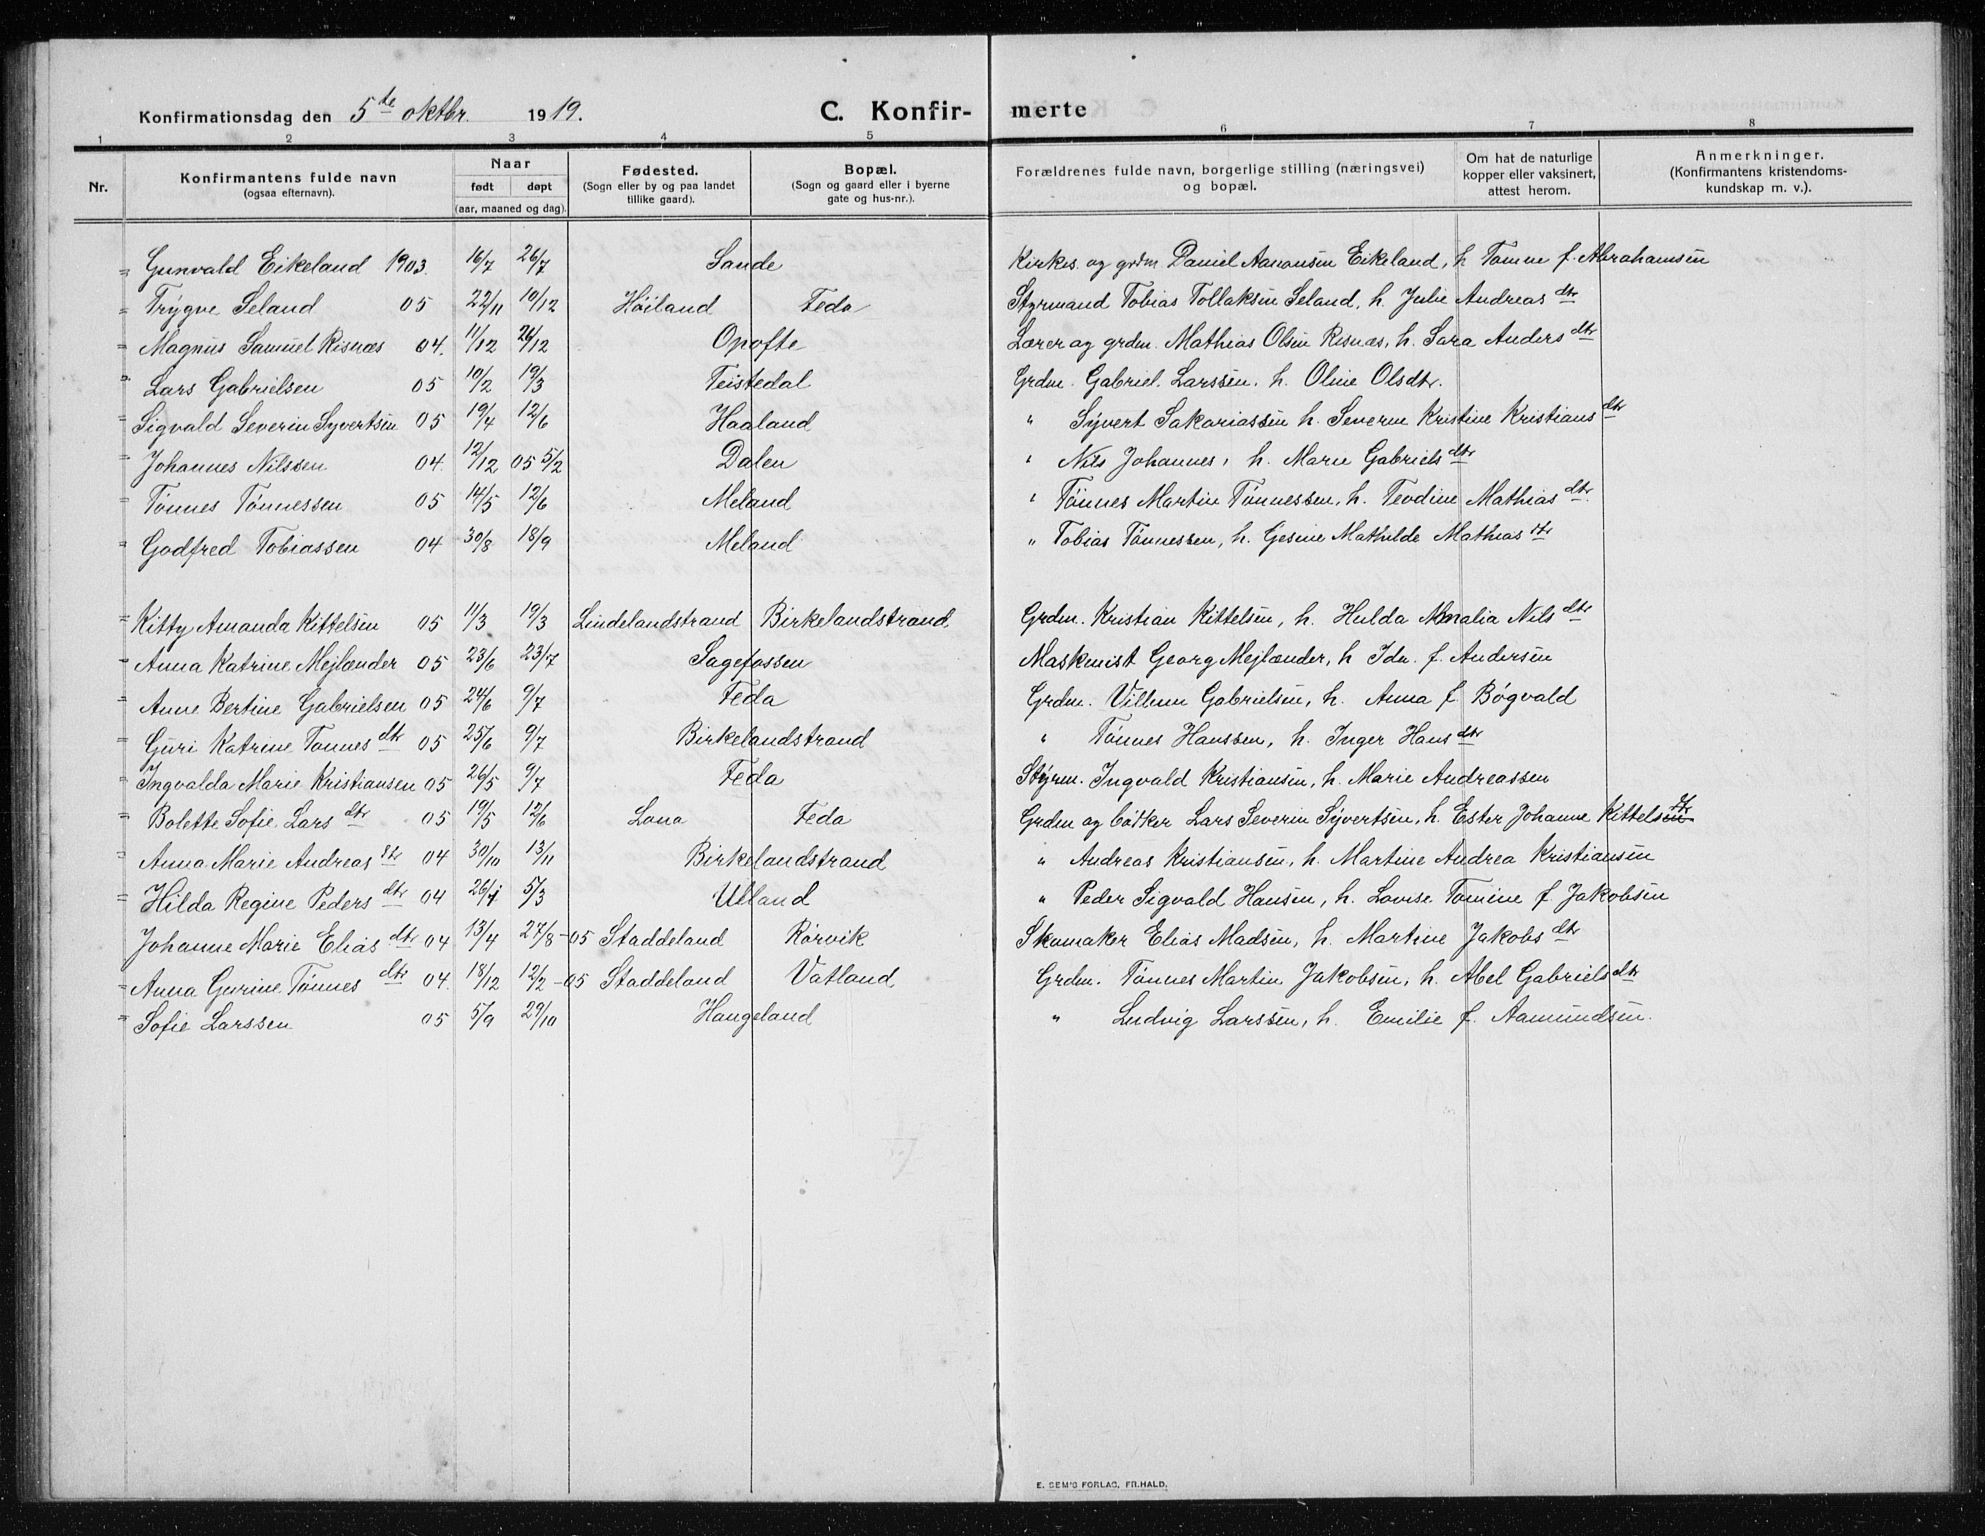 Konfirmationsdag den 5te oktbr. 1919. C. Konfir- merte
1 2 3 4 5 6 7 8
Nr. Konfirmantens fulde navn (ogsaa efternavn). Naar født døpt (aar, maaned og dag). Fødested. (Sogn eller by og paa landet tillike gaard). Bopæl. (Sogn og gaard eller i byerne gate og hus-nr.). Forældrenes fulde navn, borgerlige stilling (næringsvei) og bopæl. Om hat de naturlige kopper eller vaksinert, attest herom. Anmerkninger. (Konfirmantens kristendoms- kundskap m. v.).
= Gunvald Eikeland 1903. 16/7 26/7 Sande Kirkes. og grdm Daniel Aanonsen Eikeland, h. Tomne f. Abrahamsen
= Trygve Seland 05 22/11 10/12 Høiland Feda Styrmand Tobias Tollaksen Seland, h. Julie Andreas dtr
= Magnus Samuel Risnæs 04. 11/12 26/12 Opofte Lærer og grdm. Mathias Olsen Resnæs, h. Sara Anders dtr
" Lars Gabrielsen 05 10/2 19/3 Feistedal Grdm. Gabriel Larssen. h. Oline Olsdtr.
= Sigvald Severin Syvertsen 05 19/4 12/6 Haaland " Syvert Sakariassen h. Severine Kristine Kristians dtr
= Johannes Nilssen 04. 12/12 05 5/2 Dalen " Nils Johannes, h. Marie Gabriels dtr
= Tønnes Tønnessen 05 14/5 12/6 Meland " Tønnes Martin Tønnessen, h. Teodine Mathias dtr.
= Godfred Tobiassen 04 30/8 18/9 Meland " Tobias Tønnessen, h. Gesine Mathilde Mathias dtr
= Kitty Amanda Kittelsen 05 11/3 19/3 Lindelandstrand Birkelandstrand Grdm. Kristian Kittelsen, h. Hulda Amalia Nils dtr
= Anna Katrine Mejlænder 05 23/6 23/7 Sagefossen Maskinist Georg Mejlænder, h. Ida f. Andersen
= Anne Bertine Gabrielsen 05 24/6 9/7 Feda Grdm. Villum Gabrielsen, h. Anna f. Bøgvald
= Guri Katrine Tønnes dtr 05 25/6 9/7 Birkelandstrand " Tønnes Hanssen, h. Inger Hans dtr
= Ingvalda Marie Kristiansen 05 26/5 9/7 Feda Styrm. Ingvald Kristiansen, h. Marie Andreassen
= Bolette Sofie Lars dtr 05 19/5 12/6 Lona Feda Grdm og bødker Lars Severin Syvertsen, h. Ester Johanne Kittelsen dtr
= Anna Marie Andreas dtr 04 30/10 13/11 Birkelandstrand " Andreas Kristiansen, h. Martine Andrea Kristiansen
= Hilda Regine Peders dtr 04 26/1 5/3 Utland " Peder Sigvald Hansen, h. Lovise Tomine f. Jakobsen
Johanne Marie Elias dtr 04 13/4 27/8 - 05 Staddeland Rørvik Skomaker Elias Madsen, h. Martine Jakobs dtr
= Anna Gurine Tønnes dtr 04. 18/12 12/2 - 05 Staddeland Vatland Grdm. Tønnes Martin Jakobsen, h. Abel Gabriels dtr
= Sofie Larssen 05 5/9 29/10 Haugeland " Ludvig Larssen, h. Emilie f. Aamundsen.
E. SEM'S FORLAG, FR.HALD.